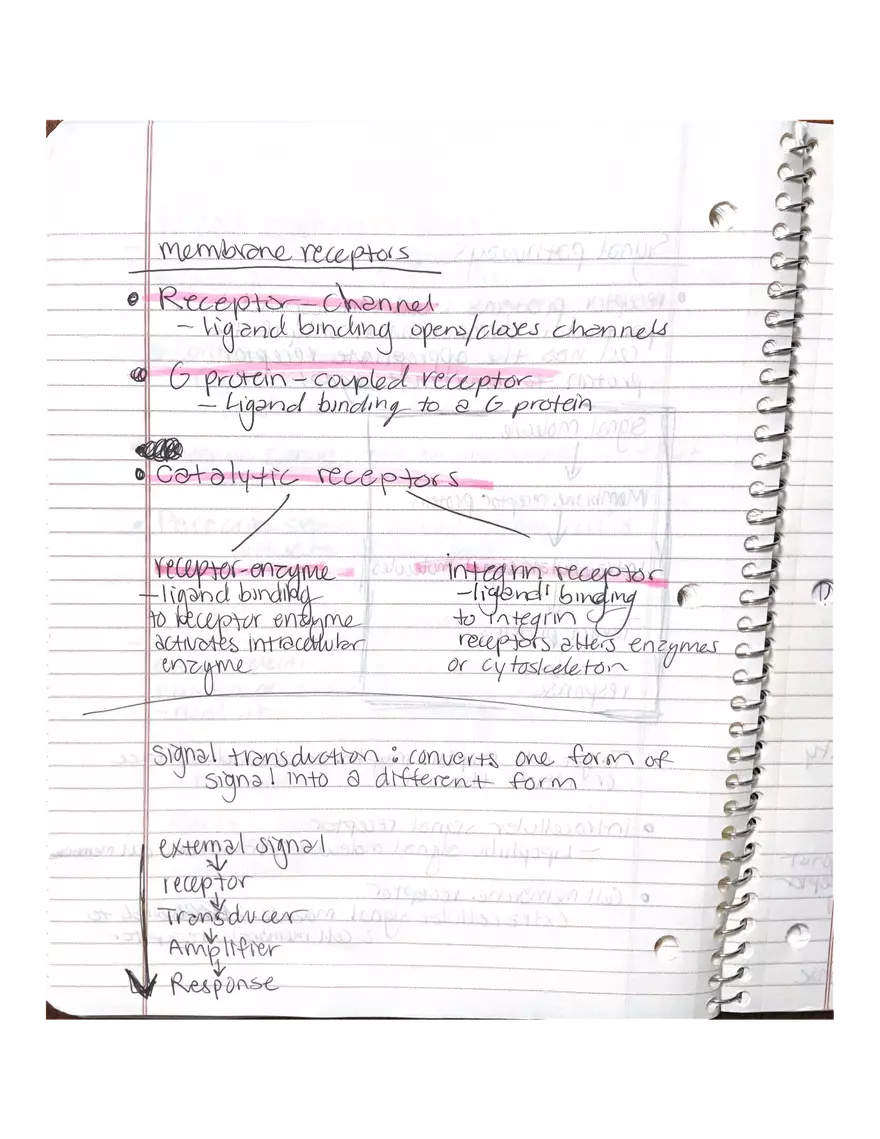 membrane receptors
Receptor - Channel
- Ligand binding opens/closes channels
G protein - coupled receptor
- Ligand binding to a G protein
Catalytic receptors
receptor-enzyme
- ligand binding
to receptor enzyme
activates intracellular
enzyme
integrin receptor
- ligand binding
to integrin
receptors alters enzymes
or cytoskeleton
Signal transduction: converts one form of
signal into a different form
external signal
receptor
Transducer
Amplifier
Response